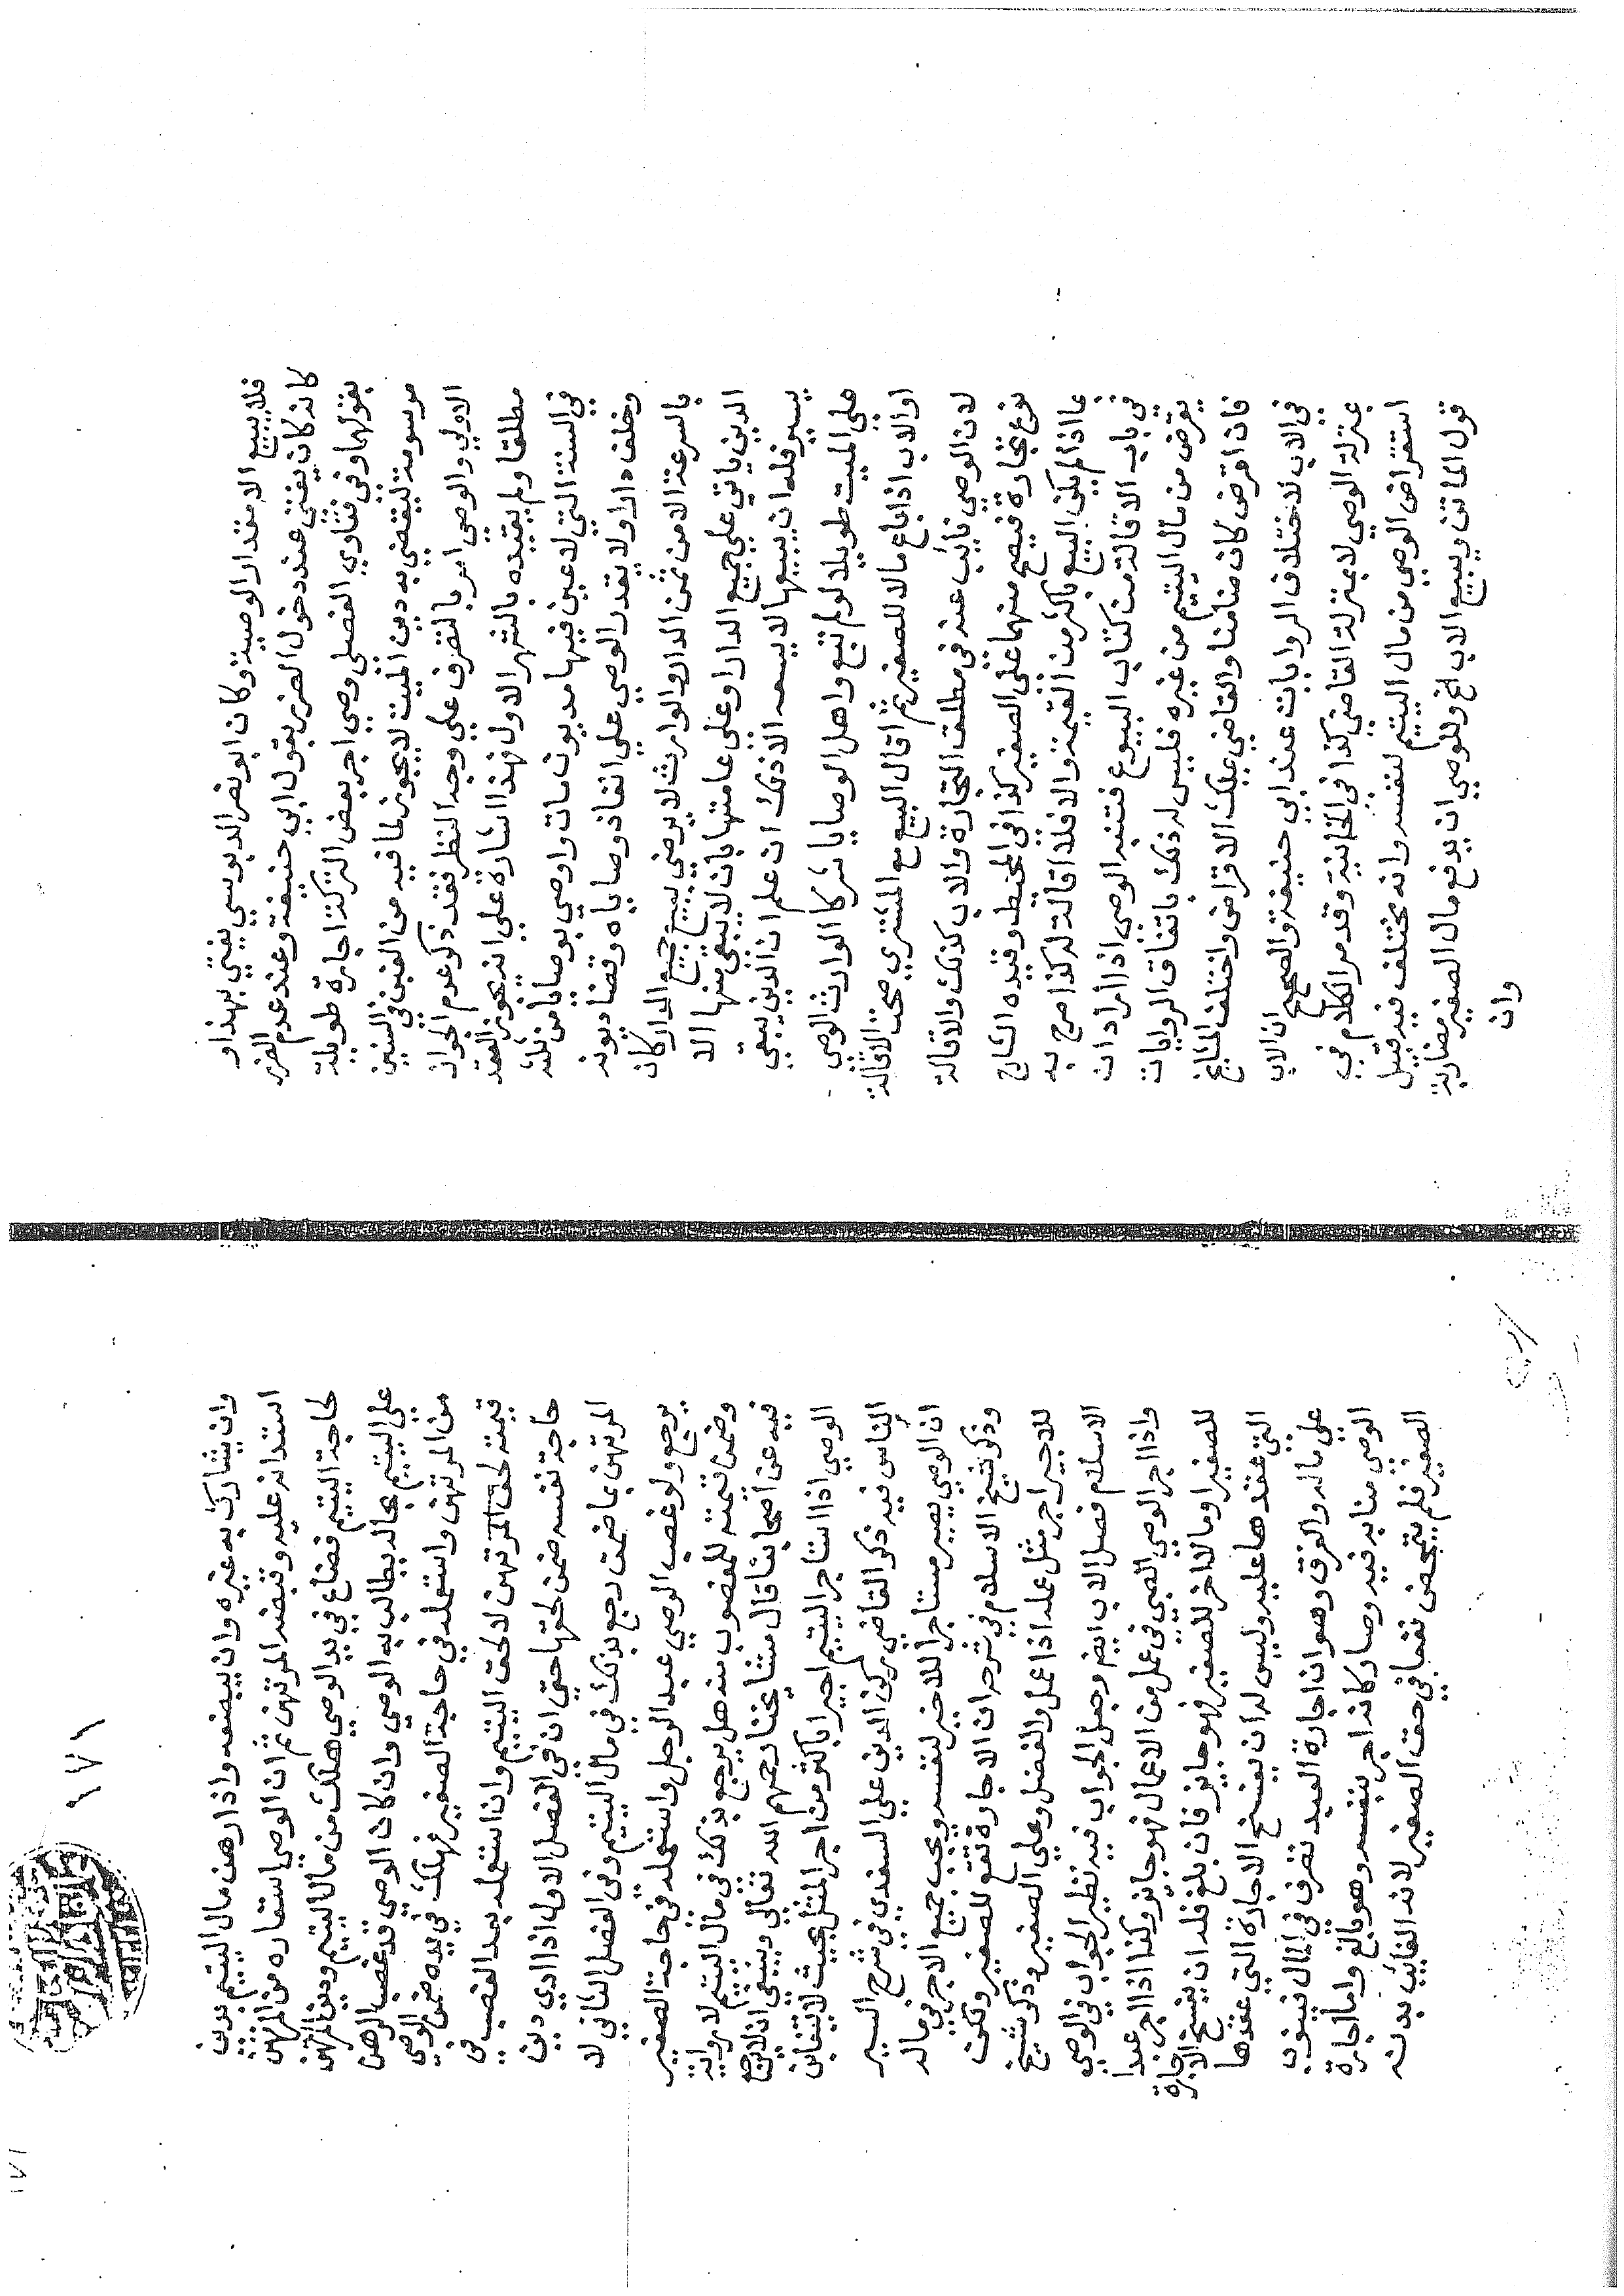 فلا يبيع الا مقدار الوصية وكان ابو نصر الدبوسي يفتي بهذا و
كانه كان يفتي عند دخول الضرر بقول ابي حنيفة وعند عدم الضرر
بقولهما وفي فتاوي الفضلي وصي اجر بعض التركة اجارة طويلة
مرسومة ليقضي به دين الميت لا يجوز لما فيه من الغبن في السنين
الاولي والوصي امر بالتصرف علي وجه النظر فقد ذكر عدم الجواز
مطلقا ولم يقيده بالشهر الاول فهذا اشارة علي انه يجوز العقد
في السنة التي لا غبن فيها مديون مات واوصي بوصايا من ثلثه
وخلف دارا ولا يقدر الوصي علي انفاذ وصاياه وقضا ديونه
بالسرعة الا من ثمن الدار والوارث لا يرضي ببيع جميع الدار كان
الدين ياتي علي جميع الدار او علي عامتها بان لا يبقي منها الا
يسير فله ان يبيعها لا يسعه الا ذلك ان علم ان الدين يبقي
علي الميت طويلا لو لم تبع واهل الوصايا شركا الوارث الوصي
او الاب اذا باع مالا للصغير ثم اقال البيع مع المشتري صحت الاقالة
لان الوصي نائب عنه في مطلق التجارة والاب كذلك والاقالة
نوع تجارة فيصح منهما علي الصغير كذا في المحيط وقيده الشارح
بما اذا لم يكن البيع باكثر من القيمة والا فلا اقالة له كذا صرح به
في باب الاقالة من كتاب البيوع فتنبه الوصي اذا اراد ان
يقرض من مال اليتيم من غيره فليس له ذلك باتفاق الروايات
فان اقرض كان ضامنا والقاضي يملك الاقراض واختلف المشايخ
في الاب لاختلاف الروايات عند ابي حنيفة والصحيح ان الاب
بمنزلة الوصي لا بمنزلة القاضي كذا في الخانية وقد مر الكلام في
استقراض الوصي من مال اليتيم لنفسه وانه مختلف فيه قبيل
قول الماتن ويبيع الاب الخ وللوصي ان يدفع مال الصغير مضاربة
وان
١٧١
وان يشارك به غيره وان يبيضعه واذا رهن مال اليتيم بدين
استدانه عليه وقبضه المرتهن ثم ان الوصي استعاره من المرتهن
لحاجة اليتيم فضاع في يد الوصي هلك من مال اليتيم ودين المرتهن
علي اليتيم بحاله يطالب به الوصي وان كان الوصي قد غصب الرهن
من المرتهن واستعمله في حاجة الصغير فهلك في يده ضمن الوصي
قيمته لحق المرتهن لا لحق اليتيم وان استعمله بعد الغصب في
حاجة نفسه ضمن لحقهما حتي ان في الفصل الاول اذا ادي دين
المرتهن بما ضمن رجع بذلك في مال اليتيم وفي الفصل الثاني لا
يرجع ولو غصب الوصي عبد الرجل واستعمله في حاجة الصغير
وضمن قيمته للمغصوب منه هل يرجع بذلك في مال اليتيم لا رواية
فيه عن اصحابنا قال مشايخنا رحمهم الله تعالي وينبغي ان لا يرجع
الوصي اذا استاجر لليتيم اجيرا باكثر من اجر المثل بحيث لا يتغابن
الناس فيه ذكر القاضي ركن الدين علي السغدي في شرح السير
ان الوصي يصير مستاجرا للاجير لنفسه ويجب جميع الاجر في ماله
وذكر شيخ الاسلام في شرحه ان الاجارة تقع للصغير ولكن
للاجير اجر مثل عمله اذا عمل والفضل علي الصغير وذكر شيخ
الاسلام فصل الاب ايضا وجعل الجواب فيه نظير الجواب في الوصي
واذا اجر الوصي الصبي في عمل من الاعمال فهو جايز وكذا اذا اجر عبدا
للصغير او مالا اخر للصغير فهو جايز فان بلغ فله ان يفسخ الاجارة
التي عقدها عليه وليس له ان يفسخ الاجارة التي عقدها
علي ماله والفرق وهو ان اجارة العبد تصرف في المال فينوب
الوصي منابه فيه وصار كانه اجر بنفسه وهو بالغ واما اجارة
الصغير فلم يتمحض نفعا في حق الصغير لانه اتعاب بدنه